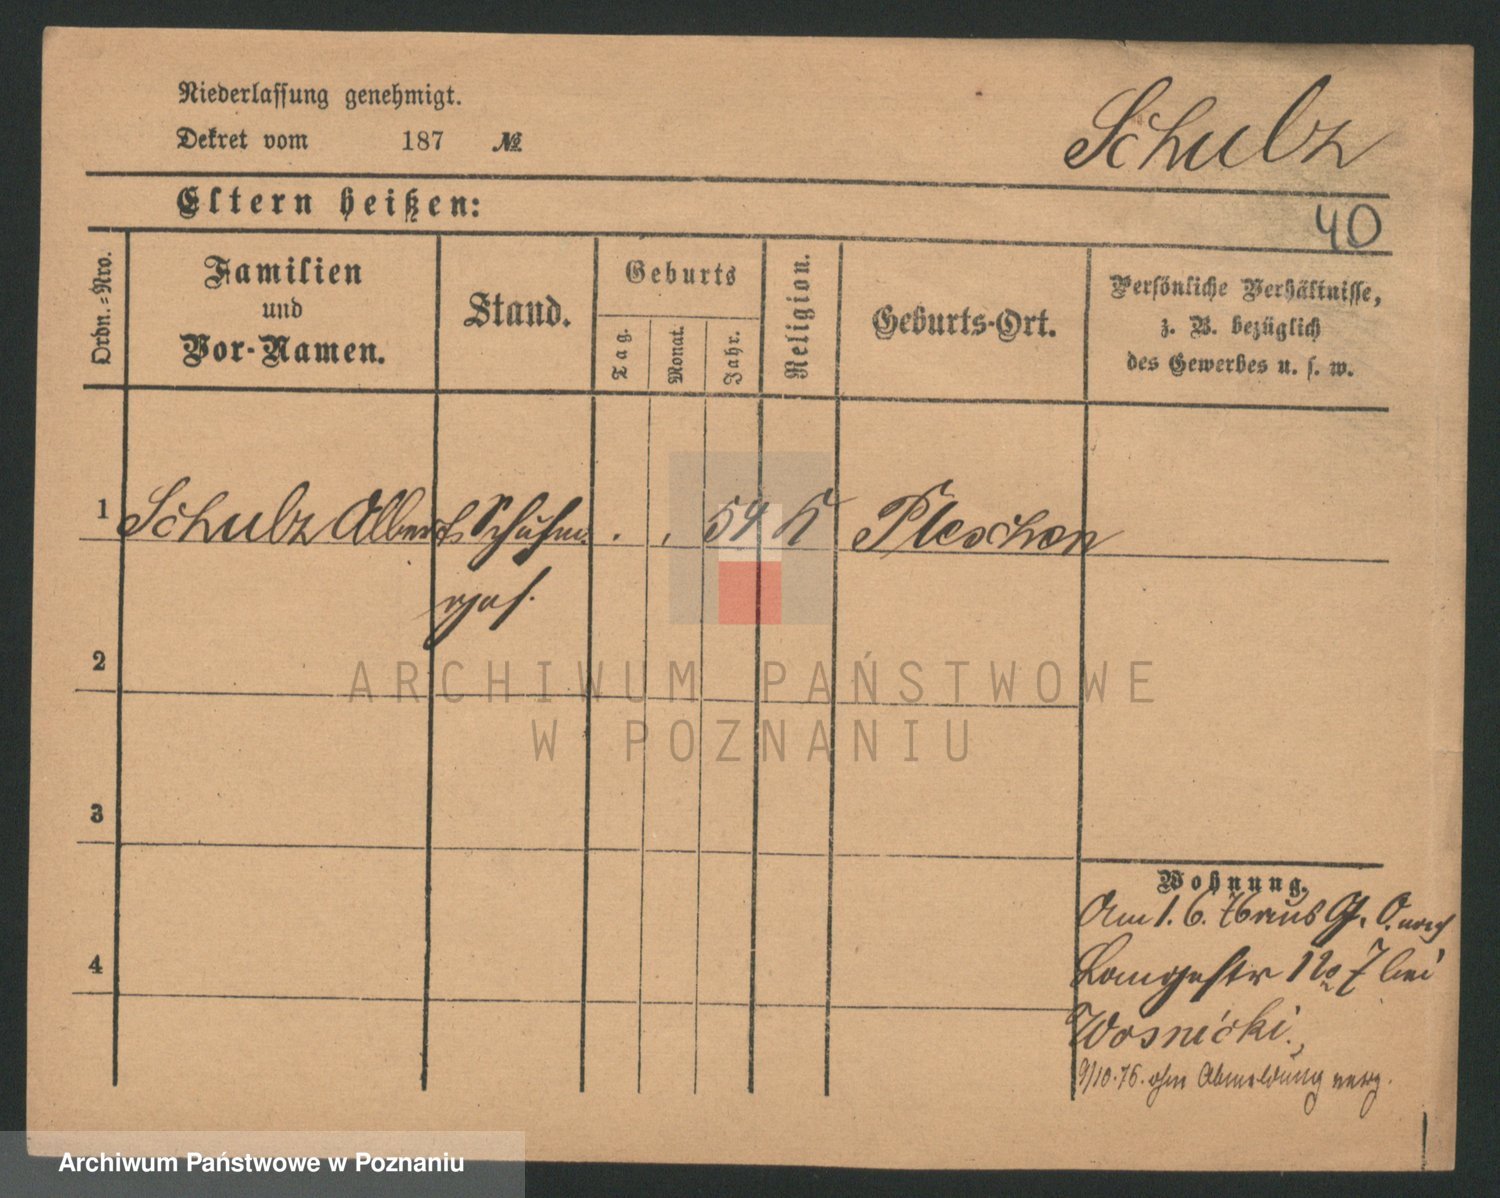 Niederlassung genehmigt.
Dekret vom 187 №
Schulz
Eltern heißen:
40
Ordn.-Nro.
Familien
und
Vor-Namen.
Stand.
Geburts
Tag.
Monat.
Jahr.
Religion.
Geburts-Ort.
Persönliche Verhältnisse,
z. B. bezüglich
des Gewerbes u. s. w.
1 Schulz Albert Schuhm. . . 59 K Pleschen
ges.
2
3
4
Wohnung.
Am 1. 6. 76 aus G. O. nach
Langestr No 7 bei
Wosnicki.,
9/10.76. ohne Abmeldung verz.
ARCHIWUM PAŃSTWOWE
W POZNANIU
Archiwum Państwowe w Poznaniu